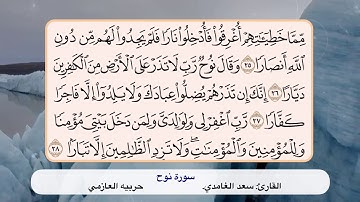 مِّمَّا خَطِيٓـَٰٔتِهِمْ أُغْرِقُوا۟ فَأُدْخِلُوا۟ نَارًا فَلَمْ يَجِدُوا۟ لَهُم مِّن دُونِ
ٱللَّهِ أَنصَارًا ٢٥ وَقَالَ نُوحٌ رَّبِّ لَا تَذَرْ عَلَى ٱلْأَرْضِ مِنَ ٱلْكَٰفِرِينَ
دَيَّارًا ٢٦ إِنَّكَ إِن تَذَرْهُمْ يُضِلُّوا۟ عِبَادَكَ وَلَا يَلِدُوٓا۟ إِلَّا فَاجِرًا
كَفَّارًا ٢٧ رَّبِّ ٱغْفِرْ لِى وَلِوَٰلِدَىَّ وَلِمَن دَخَلَ بَيْتِىَ مُؤْمِنًا
وَلِلْمُؤْمِنِينَ وَٱلْمُؤْمِنَٰتِۖ وَلَا تَزِدِ ٱلظَّٰلِمِينَ إِلَّا تَبَارًۢا ٢٨
سورة نوح
القارئ: سعد الغامدي. حربيه العازمي